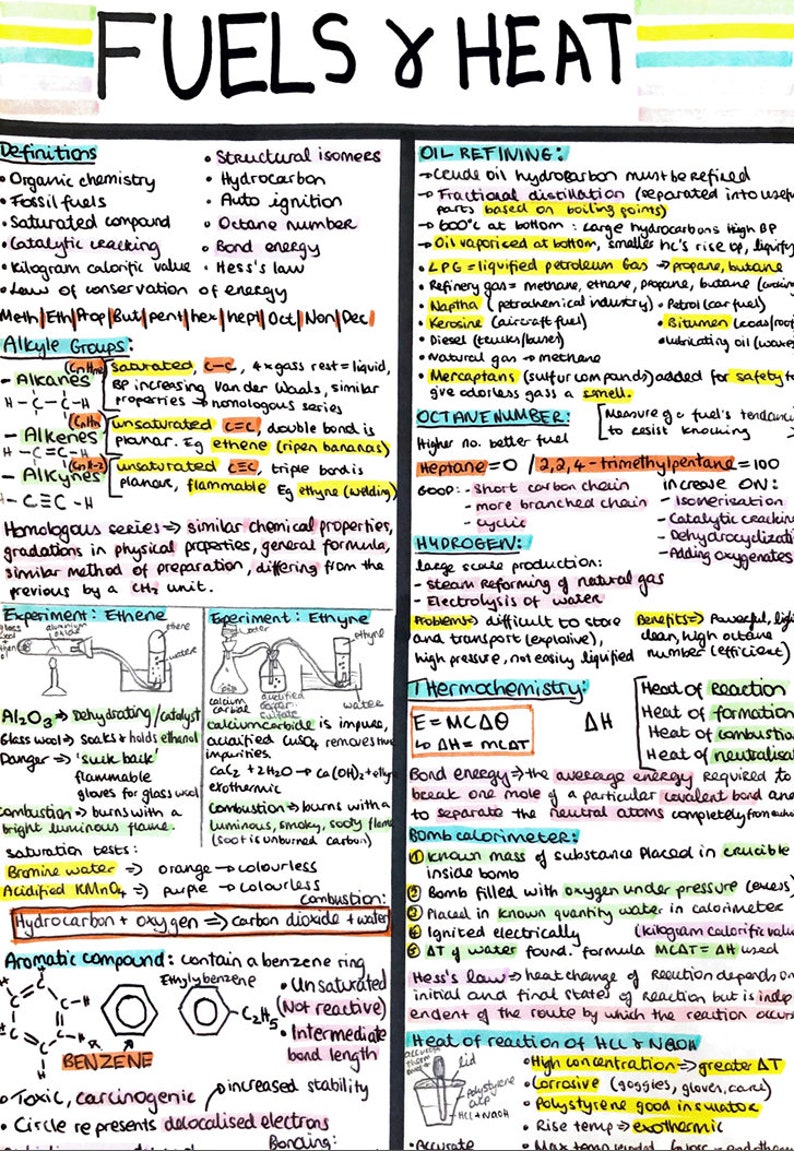 FUELS & HEAT
Definitions
• Organic chemistry
• Fossil fuels
• Saturated compound
• Catalytic cracking
• Kilogram calorific value
• Law of conservation of energy
• Structural isomers
• Hydrocarbon
• Auto ignition
• Octane number
• Bond energy
• Hess's law
Meth|Eth|Prop|But|pent|hex|hept|Oct|Non|Dec|
Alkyle Groups:
- Alkanes
saturated, C-C, 4xgass rest = liquid,
BP increasing Van der Waals, similar
properties → homologous series
H - C - C - H
(CnHn)
- Alkenes
unsaturated C=C, double bond is
planar. Eg ethene (ripen bananas)
H - C = C - H
(CnHn-2)
- Alkynes
unsaturated C≡C, triple bond is
planar, flammable Eg ethyne (welding)
- C≡C - H
Homologous series => similar chemical properties,
gradations in physical properties, general formula,
similar method of preparation, differing from the
previous by a CH2 unit.
Experiment: Ethene
aluminium
oxide
ethene
water
Al2O3 => Dehydrating/catalyst
Glass wool => soaks & holds ethanol
Danger => 'suck back'
flammable
gloves for glass wool
combustion => burns with a
bright luminous flame.
Experiment: Ethyne
water
ethyne
calcium
carbide
acidified
copper
sulfate
water
calcium carbide is impure,
acidified CuSO4 removes
impurities.
CaC2 + 2H2O → Ca(OH)2 + ethyne
exothermic
Combustion => burns with a
luminous, smoky, sooty flame
(soot is unburned carbon)
saturation tests:
Bromine water => orange → colourless
Acidified KMnO4 => purple → colourless
combustion:
Hydrocarbon + oxygen => carbon dioxide + water
Aromatic compound: contain a benzene ring
Ethylybenzene
C2H5
BENZENE
• Unsaturated
(Not reactive)
• Intermediate
bond length
• Toxic, carcinogenic
→ increased stability
• Circle represents delocalised electrons
Bonding:
OIL REFINING:
→ Crude oil hydrocarbon must be refined
→ Fractional distillation (separated into
parts based on boiling points)
→ 600°c at bottom: large hydrocarbons High BP
→ Oil vaporiced at bottom, smaller hc's rise up, liquify
• LPG = liquified petroleum gas → propane, butane
• Refinery gas = methane, ethane, propane, butane
• Naptha (petrochemical industry) • Petrol (car fuel)
• Kerosine (aircraft fuel) • Bitumen
• Diesel • lubricating oil
• Natural gas → methane
• Mercaptans (sulfur compounds) added for safety
give odorless gass a smell.
OCTANE NUMBER:
Higher no. better fuel
[Measure of a fuel's
to resist knocking
Heptane = 0 / 2,2,4-trimethylpentane = 100
GOOD: - short carbon chain
- more branched chain
- cyclic
increase ON:
- Isomerisation
- Catalytic
-
- Adding oxygenates
HYDROGEN:
large scale production:
- Steam Reforming of natural gas
- Electrolysis of water
Problems => difficult to store
and transport (explosive),
high pressure, not easily liquified
Benefits => Powerful,
clean, high octane
number (efficient)
Thermochemistry:
E = MCΔθ
↳ ΔH = MCΔT
ΔH
Heat of Reaction
Heat of formation
Heat of
Heat of
Bond energy => the average energy required to
break one mole of a particular covalent bond and
to separate the neutral atoms completely from
Bomb calorimeter:
① Known mass of substance placed in crucible
inside bomb
② Bomb filled with oxygen under pressure (excess)
③ Placed in known quantity water in calorimeter
④ Ignited electrically (kilogram calorific
⑤ ΔT of water found. formula MCΔT = ΔH used
Hess's law => heat change of Reaction depends on
initial and final states of Reaction but is
endent of the route by which the reaction occurs
Heat of reaction of HCl & NaOH
lid
Polystyrene
cup
HCl + NaOH
• High concentration => greater ΔT
• Corrosive (goggles, gloves, care)
• Polystyrene good insulator
• Rise temp → exothermic
• Accurate
• Max temp